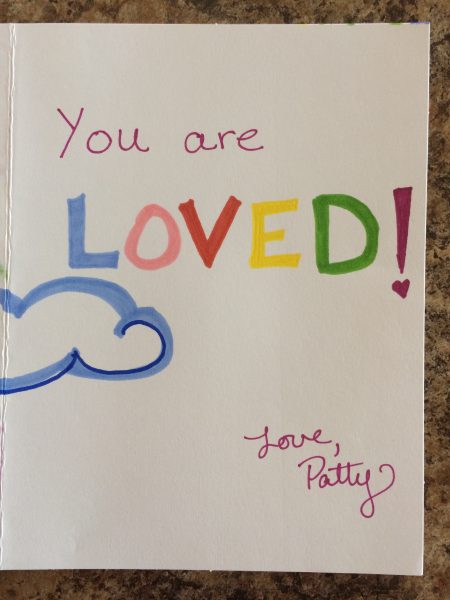 You are
LOVED!
Love,
Patty